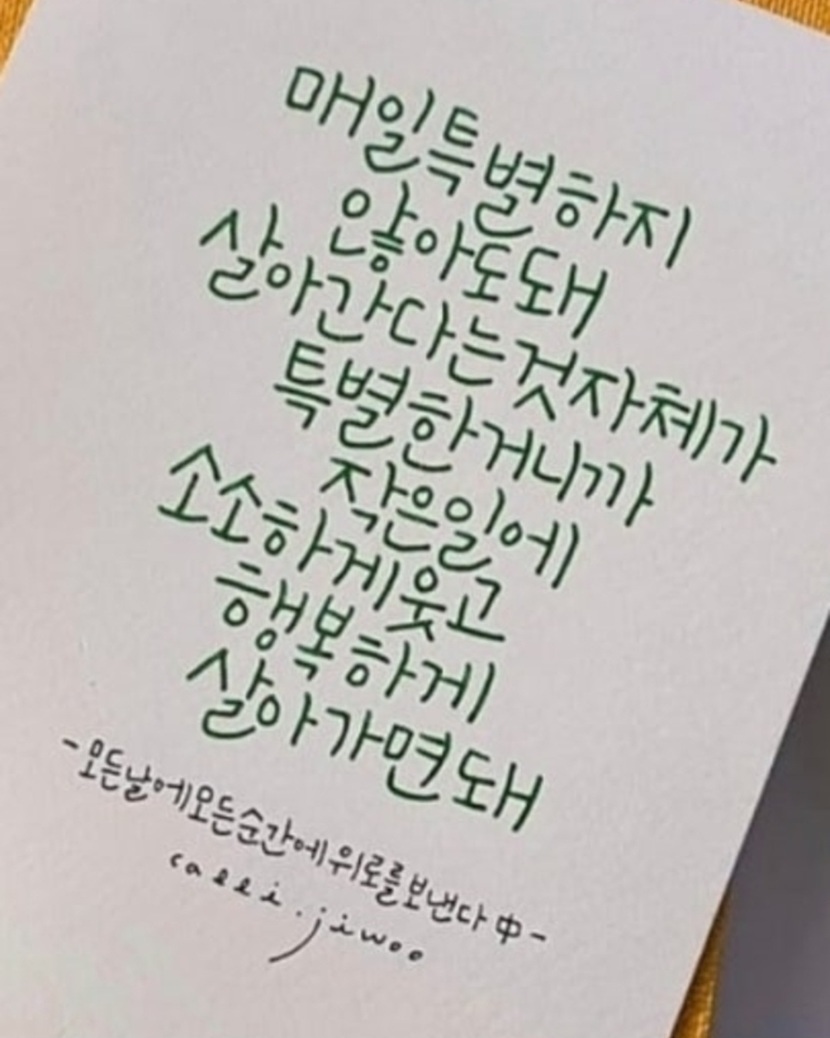 매일특별하지
않아도돼
살아간다는것자체가
특별한거니까
작은일에
소소하게웃고
행복하게
살아가면돼
-모든날에모든순간에위로를보낸다 中-
calli.jiwoo